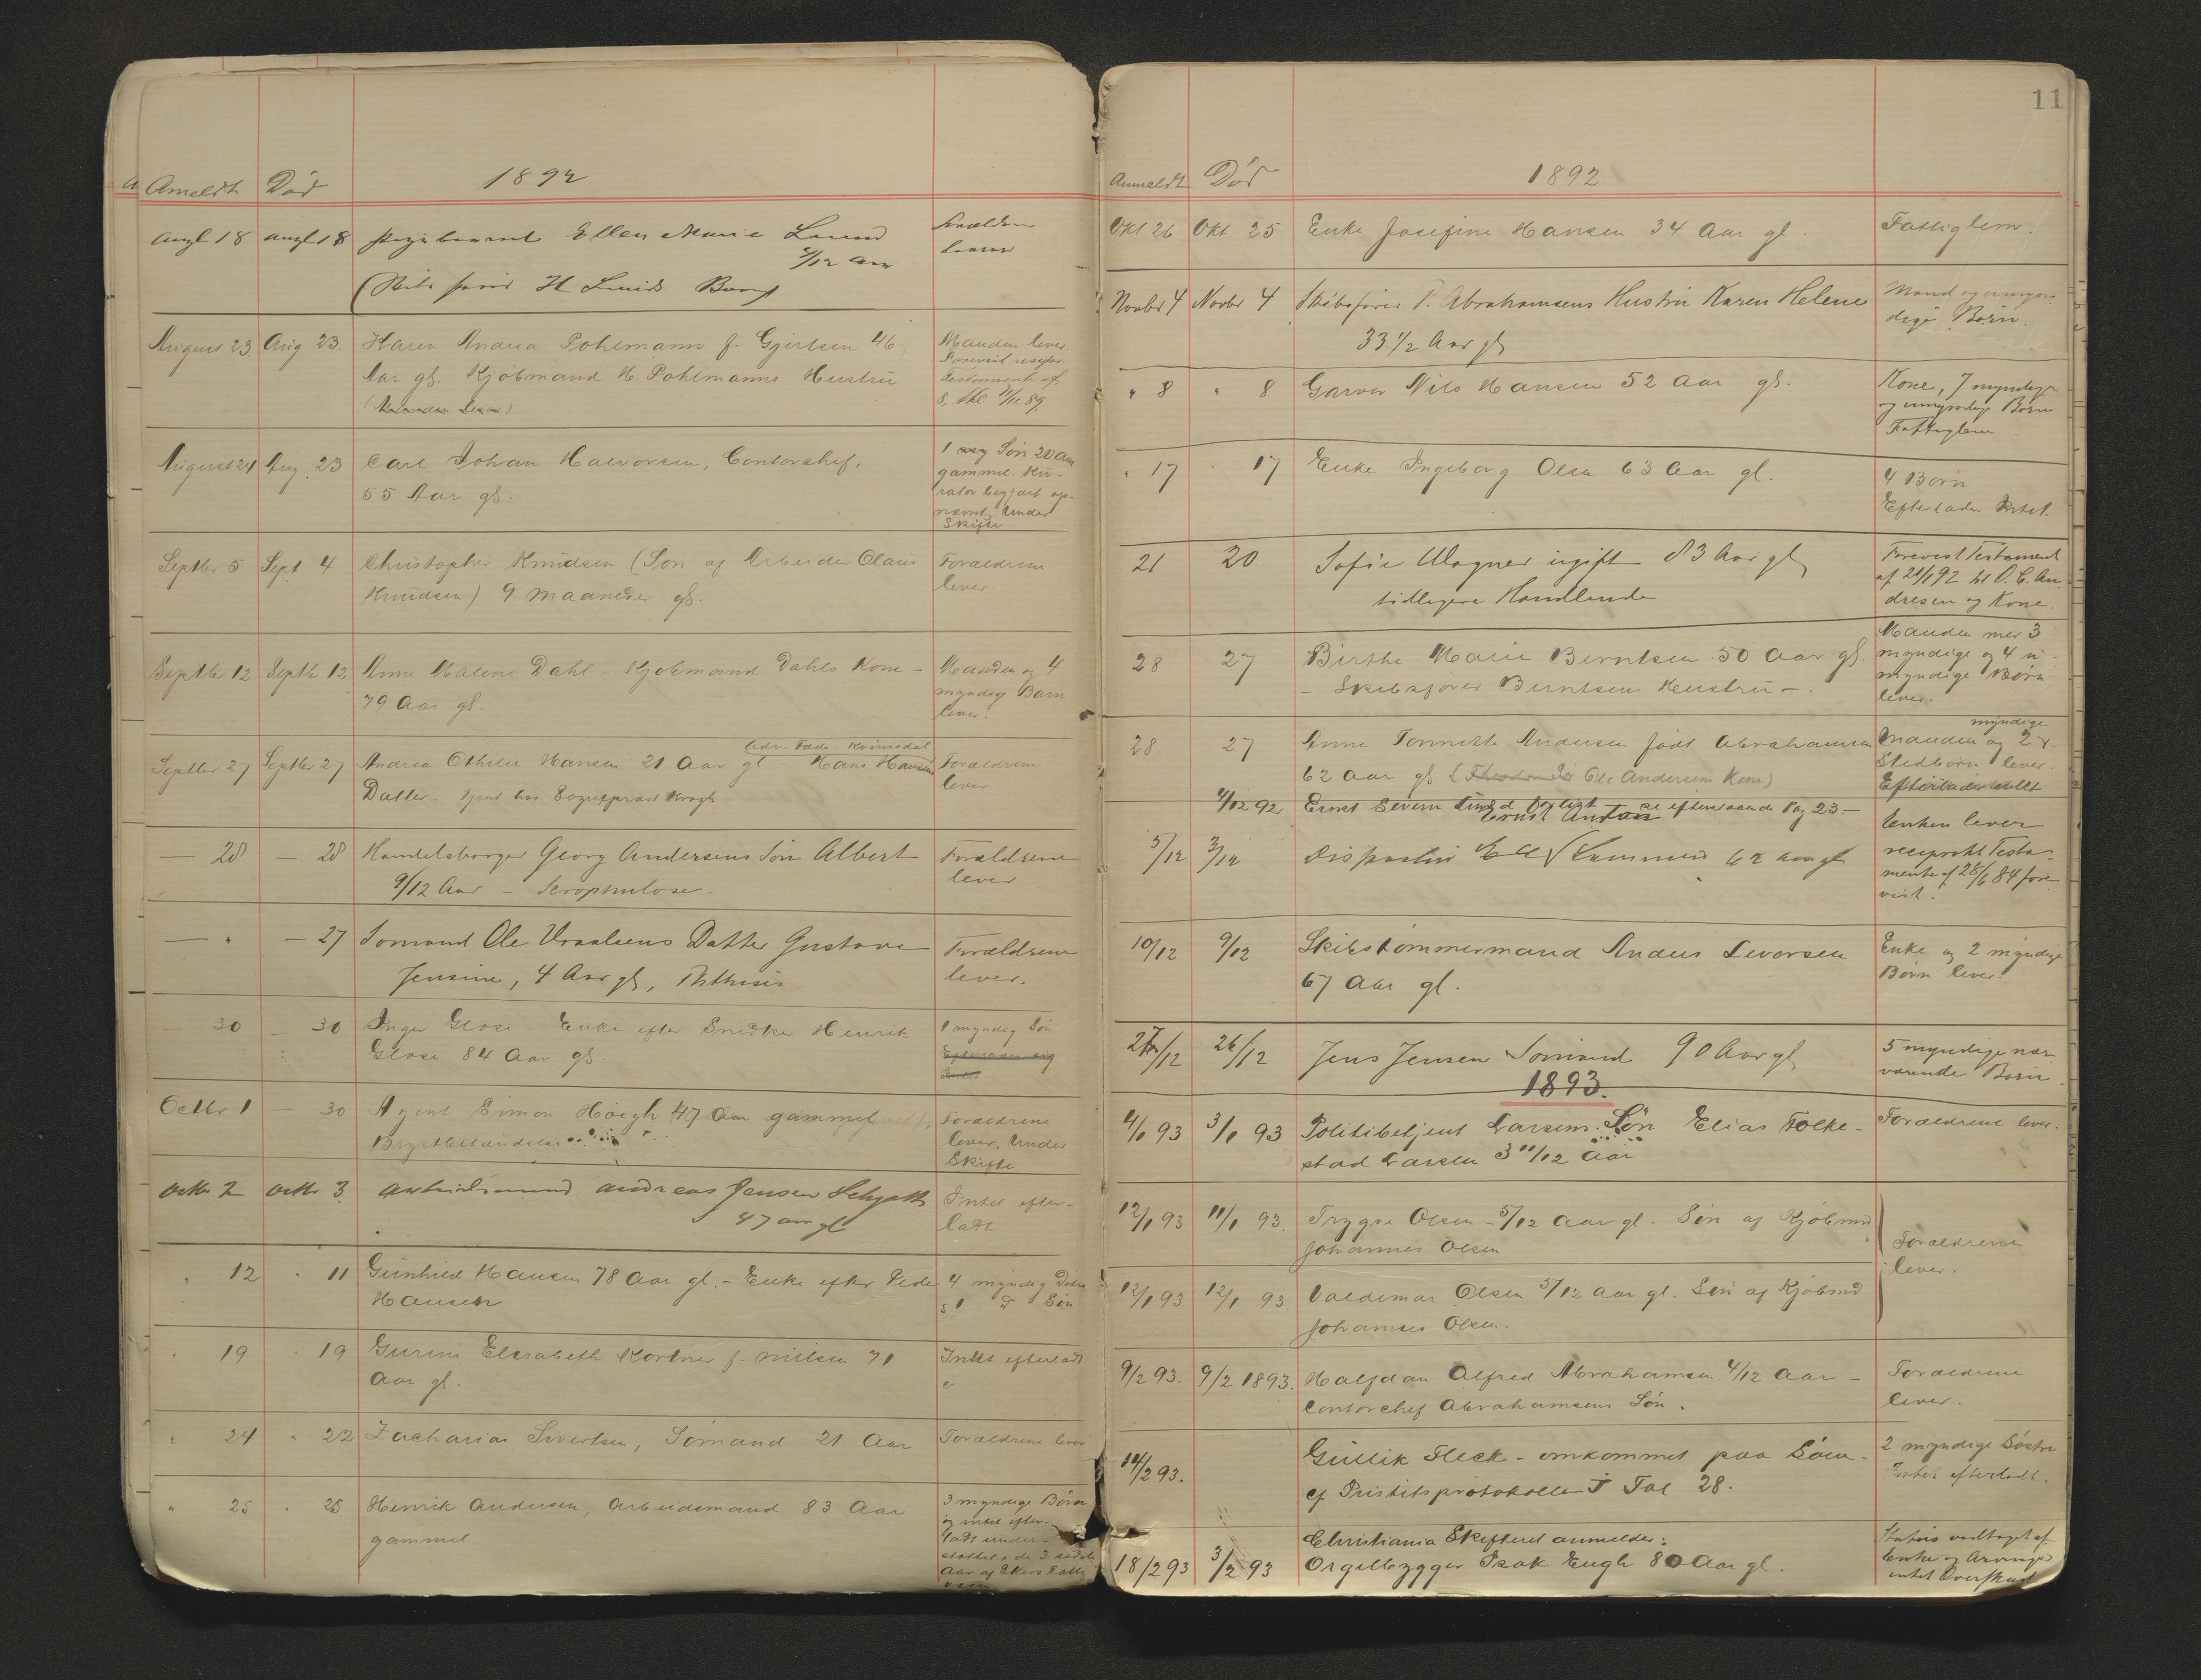 Ameldt Død 1892
Augt 18 Augt 18 Pigebarnet Ellen Marie Lund Forældrene
7/12 Aar
August 23. Aug 23. Karen Andrea Pohlmann f. Gjertsen 46 Manden lever
Aar gl. Kjøbmand H Pohlmanns Hustru Testamente af
August 24 Aug. 23 Carl Johan Halvorsen, Contorchef, 1 Søn 20 Aar
55 Aar gl. gammel. Ku-
rator begjært op-
nævnt. Under
Skifte
Septbr 5 Sept 4 Christopher Knudsen (Søn af Arbeider Olaus Forældrene
Knudsen) 9 Maaneder gl. lever
Septbr 12 Septbr 12 Anne Malene Dahl - Kjøbmand Dahls Kone - Manden og 4
79 Aar gl. myndige Børn
lever.
Adr. Fede. Kvinesdal
Septbr 27 Septbr 27 Andrea Othilie Hansen 21 Aar gl - Hans Hansens Forældrene
Datter. Tjent hos Sogneprest Krogh lever
— 28 — 28 Handelsborger Georg Andersens Søn Albert Forældrene
9/12 Aar - Scrophulose. lever
— " — 27 Sømand Ole Uraalsens Datter Gustava Forældrene
Jensine, 4 Aar gl, Phthisis lever.
— 30 — 30 Inger Glose - Enke efter Snedker Henrik 1 myndig Søn
Glose 84 Aar gl. Efterlader sig
Octbr 1 — 30 Agent Simon Høegh 47 Aar gammel Forældrene
Brystbetændelse lever. Under
Skifte
Octbr 2 Octbr 3. Arbeidsmand Andreas Jensen Intet efter-
47 Aar gl ladt
" 12 " 11 Gunhild Hansen 78 Aar gl. - Enke efter Peder 4 myndig
Hansen 1 Søn
" 19 " 19 Gurine Elisabeth Kortner f. Nilsen 71 Intet efterladt
Aar gl.
" 24 " 22 Zacharias Sivertsen, Sømand 21 Aar Forældrene lever
" 25 " 25 Henrik Andersen, Arbeidsmand 83 Aar 3 myndige Børn
gammel. og intet efter-
ladt under-
støttet i de 3 sidste
Aar af
11
Anmeldt Død 1892
Okt 26 Okt 25 Enke Josefine Hansen 34 Aar gl. Fattiglem.
Novbr 4 Novbr 4 Skibsfører P. Abrahamsens Hustru Karen Helene Mand og umyn-
33 1/2 Aar gl dige Børn.
" 8 " 8 Garver Nils Hansen 52 Aar gl. Kone, 7 myndige
og umyndige Børn
Fattiglem
" 17 " 17 Enke Ingeborg Olsen 63 Aar gl. 4 Børn
Efterlader Intet.
21 20 Sofie Wagner ugift 83 Aar gl Forevist Testament
tidligere Handlende af 21/1 92 til O. C. An-
dresen og Kone.
28 27 Birthe Marie Berntsen 50 Aar gl. Manden med 3
- Skibsfører Berntsens Hustru -. myndige og 4 u-
myndige Børn
lever.
myndige
28 27 Anne Tonnette Andersen født Abrahamsen Manden og 2
62 Aar gl Ole Andersens Kone) Stedbørn lever.
Efterlader intet
4/12 92 Ernst Severin se efterstaaende Pag 23 —
5/12 3/12 62 Aar gl Enken lever
reciprokt Testa-
mente af 28/6 84 fore-
vist.
10/12 9/12 Skibstømmermand Anders Levorsen Enke og 2 myndige
67 Aar gl. Børn lever.
27/12 26/12 Jens Jensen Sømand 90 Aar gl 5 myndige nær-
værende Børn.
1893.
4/1 93 3/1 93 Politibetjent Larsens Søn Elias Folke- Forældrene lever.
stad Larsen 3 11/12 Aar
12/1 93 11/1 93. Trygve Olsen - 5/12 Aar gl. Søn af Kjøbmd
Johannes Olsen Forældrene
lever.
13/1 93 12/1 93. Valdemar Olsen 5/12 Aar gl. Søn af Kjøbmd
Johannes Olsen.
9/2 93. 9/2 1893. Halfdan Alfred Abrahamsen 4/12 Aar - Forældrene
Contorchef Abrahamsens Søn. lever.
14/2 93. Gullik Fleck - omkommet paa Søen - 2 myndige Søstre
cf Pristitsprotokollen I Fol 28. Intet efterladt.
Christiania Skifteret anmelder:
18/2 93 3/2 93 Orgelbygger Isak Engh 80 Aar gl. Enke og Arvinger
intet Overskud